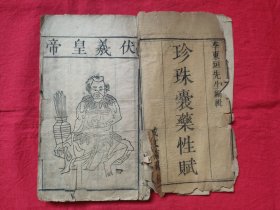 李東垣先生編輯
珍珠囊藥性賦
伏羲皇帝